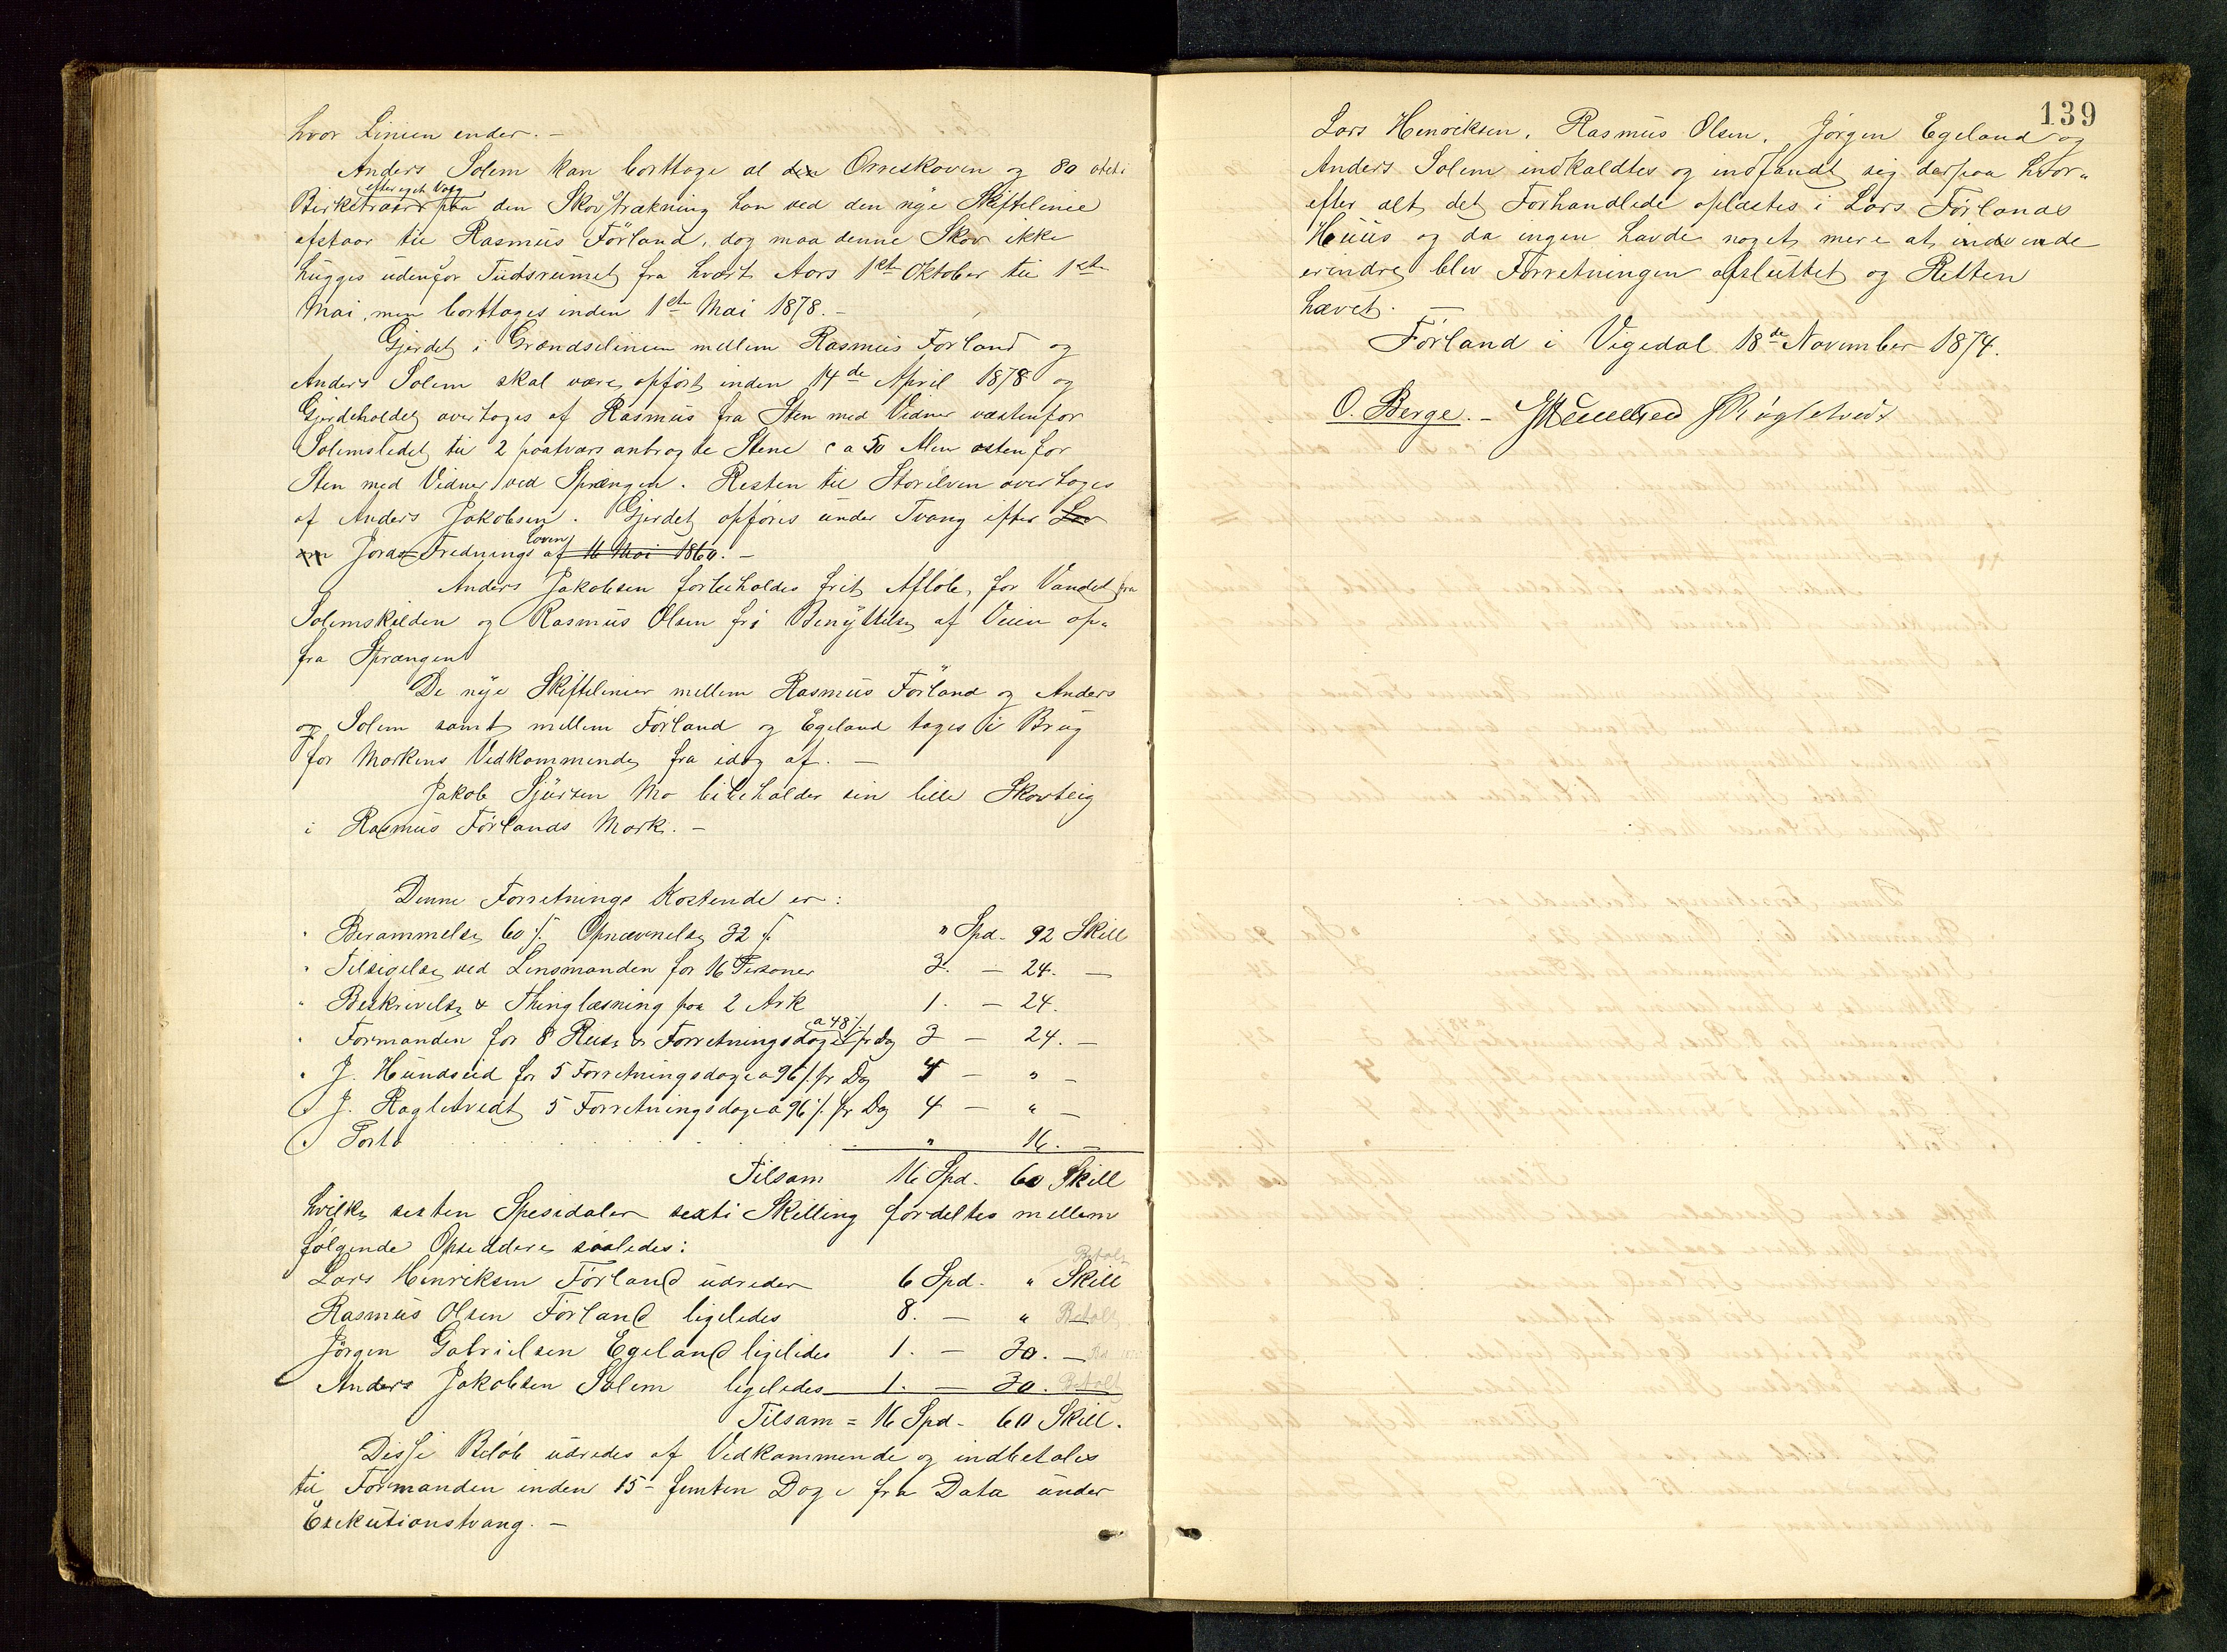 hvor Linien ender. –
Anders Solem kan borttage al den Orreskoven og 80 otteti
efter eget Valg
Birketræer paa den Skovstrækning han ved den nye Skiftelinie
afstaar til Rasmus Förland, dog maa denne Skov ikke
hugges udenfor Tidsrumet fra hvert Aars 1ste Oktober til 1ste
Mai, men borttages inden 1ste Mai 1878. –
Gjerdet i Grændselinien mellem Rasmus Forland og
Anders Solem skal være opfört inden 14de April 1878 og
Gjerdeholdet overtages af Rasmus fra Sten med Vidner vestenfor
Solemsledet til 2 paatværs anbragte Stene ca 50 Alen østenfor
Sten med Vidner ved Sprængen. Resten til Storelven overtages
af Anders Jakobsen. Gjerdet opföres under Tvang efter Lov
om Jords Frednings loven af 16 Mai 1860. –
Anders Jakobsen forbeholdes frit Aflöb, for Vandet fra
Solemskilden og Rasmus Olsen fri Benyttelse af Veien op-
fra Sprængen
De nye Skiftelinier mellem Rasmus Förland og Anders
og Solem samt mellem Förland og Egeland tages i Brug
for Markens Vedkommende fra idag af. –
Jakob Sjursen Mo bibeholder sin lille Skovteig
i Rasmus Förlands Mark. –
Denne Forretnings Kostende er:
" Berammelse 60 f. Opnævnelse 32 f. " Spd. 92 Skill
" Tilsigelse ved Lensmanden for 16 Personer 2. – 24. –
" Beskrivelse & Thinglæsning paa 2 Ark 1. – 24.
a 48 f.
" Formanden for 8 Reise & Forretningsdage pr Dag 3 – 24. –
" J. Hundseid for 5 Forretningsdage a 96 f. pr Dag 4 – " –
" J. Rogletvedt 5 Forretningsdage a 96 f. pr Dag 4 – " –
" Porto " 16. –
Tilsam 16 Spd. 60 Skill
hvilke sexten Spesidaler sexti Skilling fordeltes mellem
følgende Opsiddere saaledes:
Betalt
Lars Henriksen Förland udreder 6 Spd. " Skill
Rasmus Olsen Förland ligeledes 8. – " Betalt
Jörgen Gabrielsen Egeland ligeledes 1. – 30. –
Anders Jakobsen Solem ligeledes 1. – 30. Betalt
Tilsam = 16 Spd. 60 Skill.
Disse Belöb udredes af Vedkommende og indbetales
til Formanden inden 15 – femten Dage fra Data under
Exekutionstvang. –
139
Lars Henriksen, Rasmus Olsen, Jörgen Egeland og
Anders Solem indkaldtes og indfandt sig derpaa hvor-
efter alt det Forhandlede oplæstes i Lars Förlands
Huus og da ingen havde noget mere at indvende
erindre blev Forretningen afsluttet og Retten
hævet. –
Förland i Vigedal 18de November 1874.
O. Berge. – JHundseid JRögletvedt